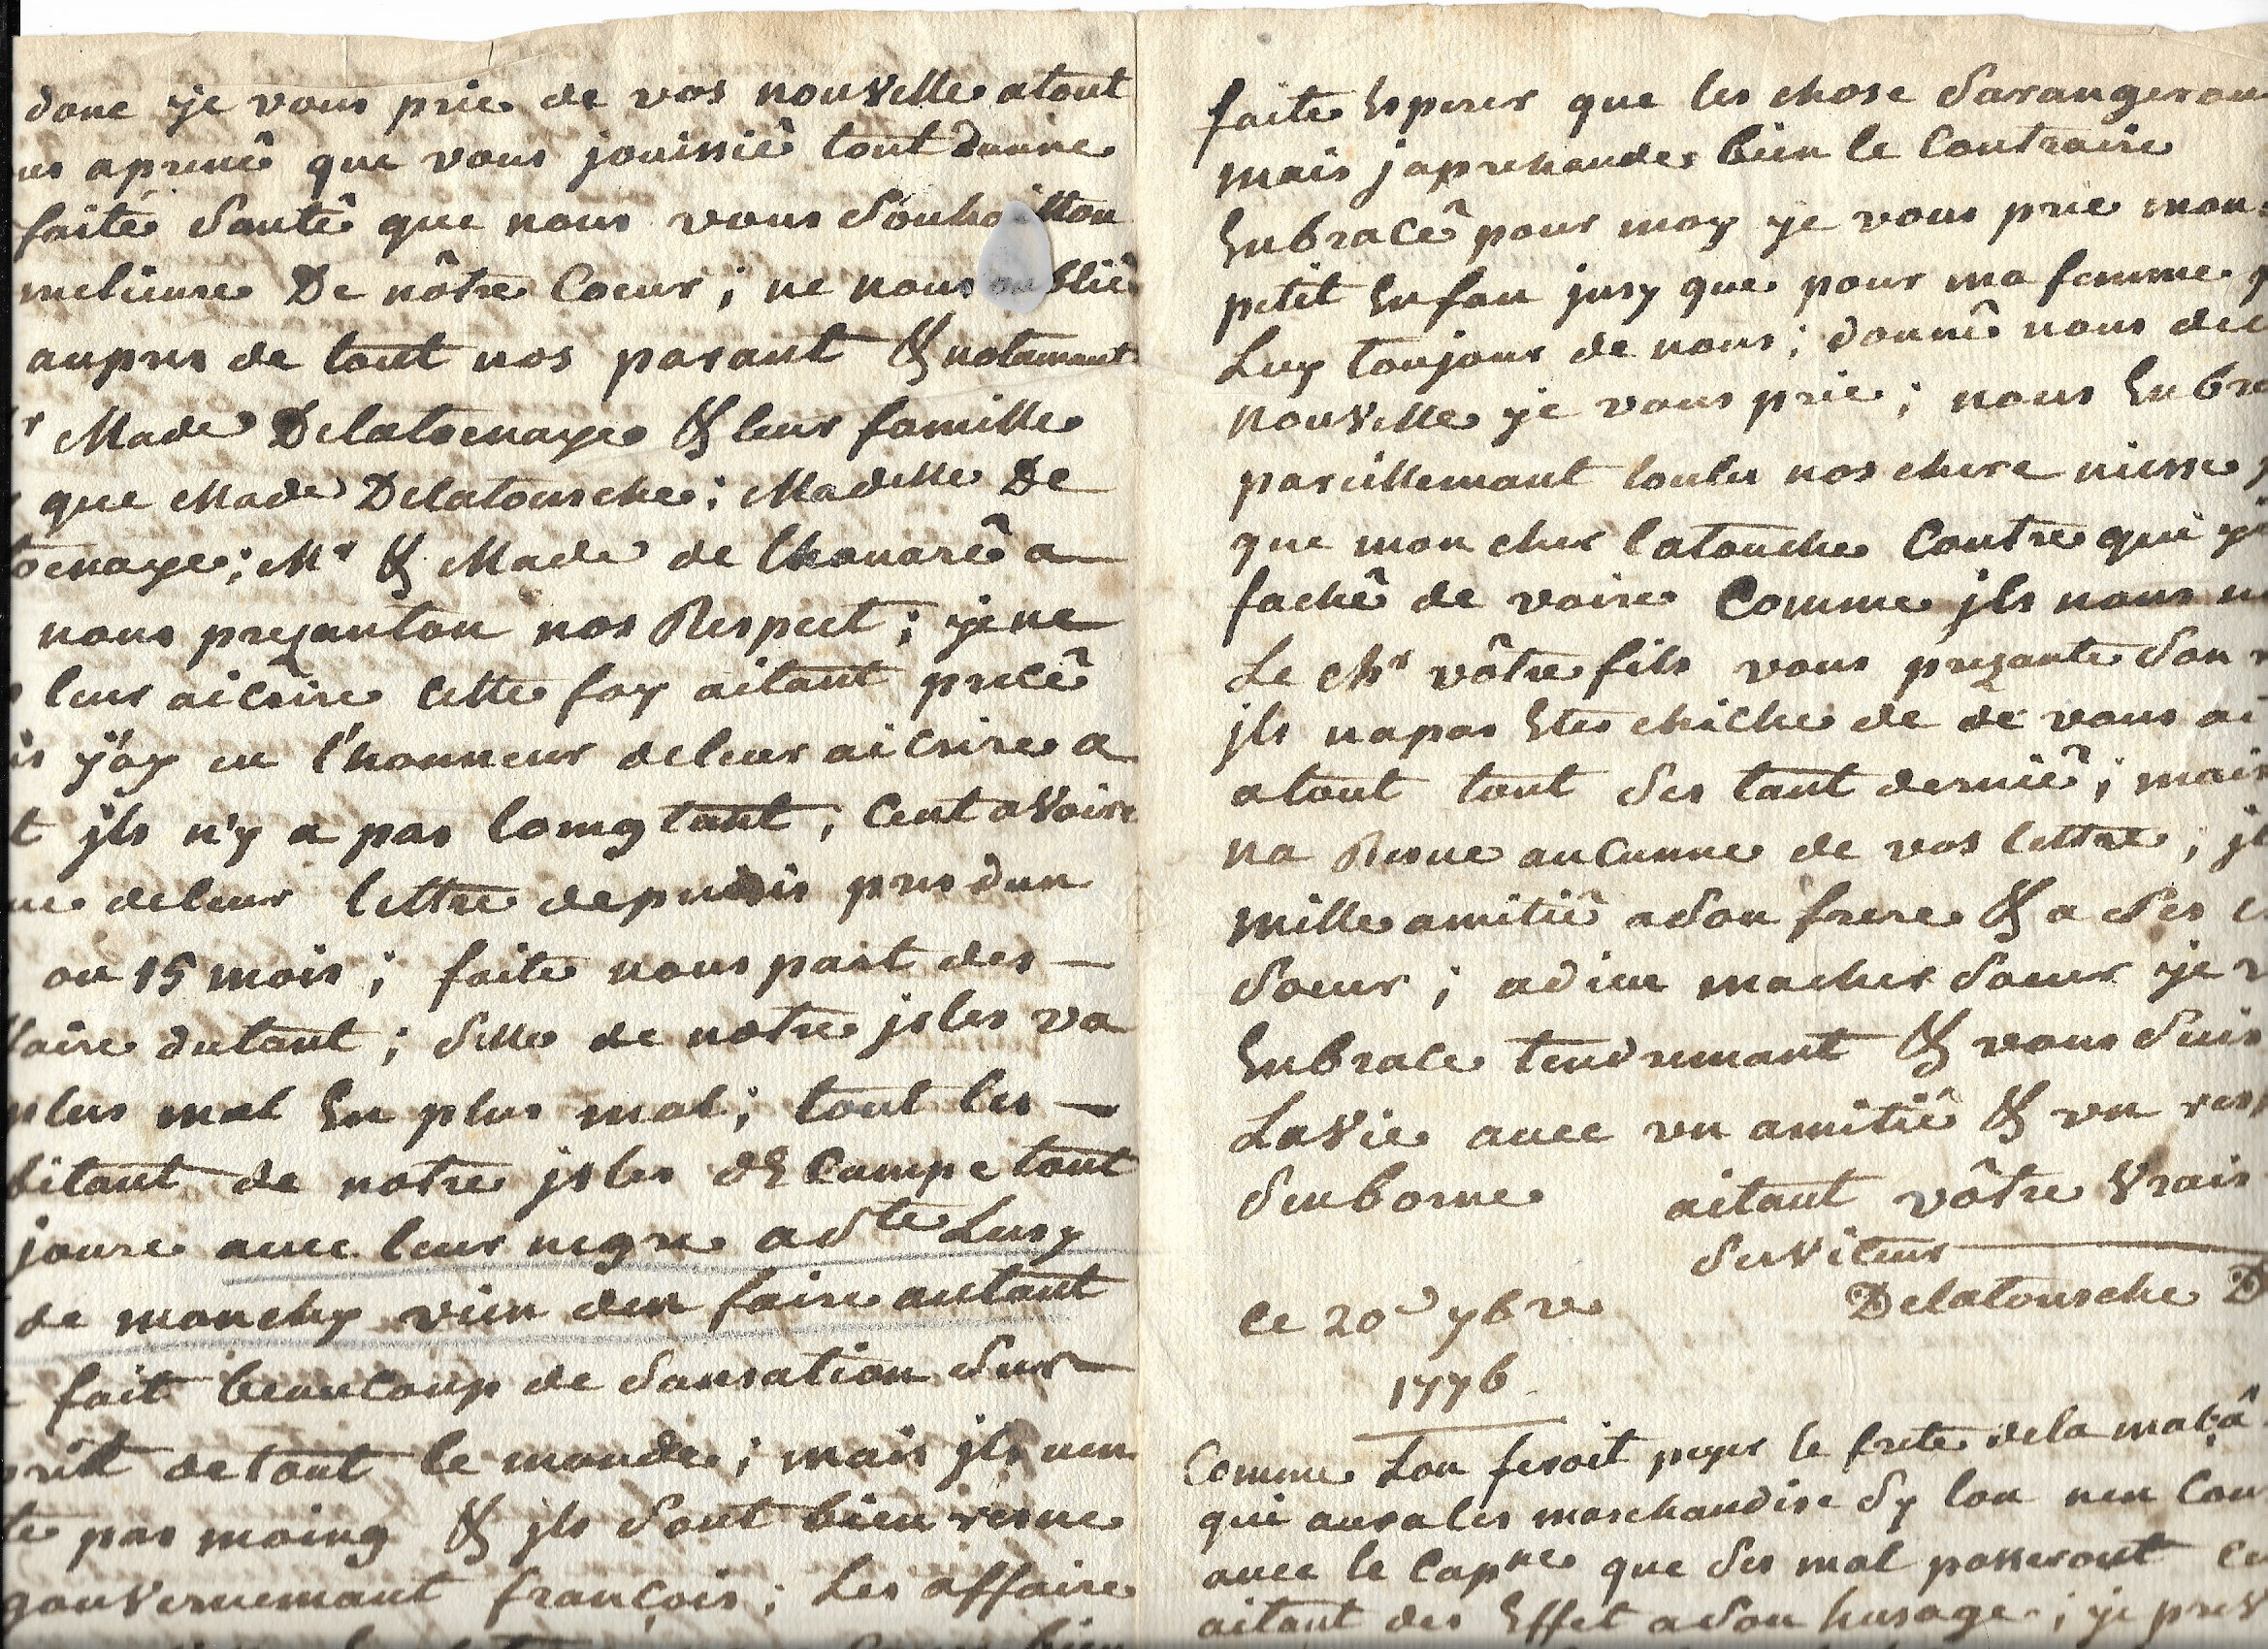 donc je vous prie de vos nouvelle atout
aprenê que vous jouissiê tout dunne
faite Santê que nous vous Souhaitton
melieure De nôtre Coeur; ne nous oubliê
aupres de tout nos parant & notamant
r Made Delatocnaye & leur famille
que Made Delatousche; Madelle De
ocnaye; Mr & Made de lhouarê a
nous prezanton nos Respect; je ne
leur aicrire cette foy aitant precê
j'ay eu l'honneur de leur aicrire a
t jls n'y a pas lomg tant, Cent avoire
ue de leur lettre depuis pres dun
ou 15 mois; faite nous part des
faire dutant; Selle de notre jsles va
plus mal En plus mal; tout les
bitant de notre jsles dEcampe tout
joure avec leur negre a Ste Lusy
de monchy vien den faire autant
fait beaucoup de Sansation Sur
prit de tout le monde; mais jls nen
te pas moing & jls Sont bien resue
gouvernemant françois; Les affaire
faite Esperer que les chose Sarangeron
mais japrehande bien le Contraire
Enbracê pour moy je vous prie mon
petit Enfan jusy que pour ma femme
Luy toujour de nous; donnê nous de
nouvelle je vous prie; nous Enbra
pareillemant toutes nos chere niesse
que mon cher latouche Contre qui
fachê de voire Comme jls nous
Le chr vôtre fils vous prezante Son
jls napas Etes chiche de de vous ai
atout tout Ses tant derniê; mais
na Resue auCunne de vos lettre; jl
mille amitiê a Son frere & a Ses
Soeur; adieu macher Soeur je v
Enbrace tendremant & vous Suis
La Vie avec un amitiê & un res
Senborne aitant vôtre Vrais
Serviteur
Delatousche D
ce 20d 7bre
1776
Comme Lon feroit peyer le frete de la mala
qui aura les marchandise Sy lon nen Con
avec le Capne que Ses mal passeront
aitant des Effet a Son husage; je pres